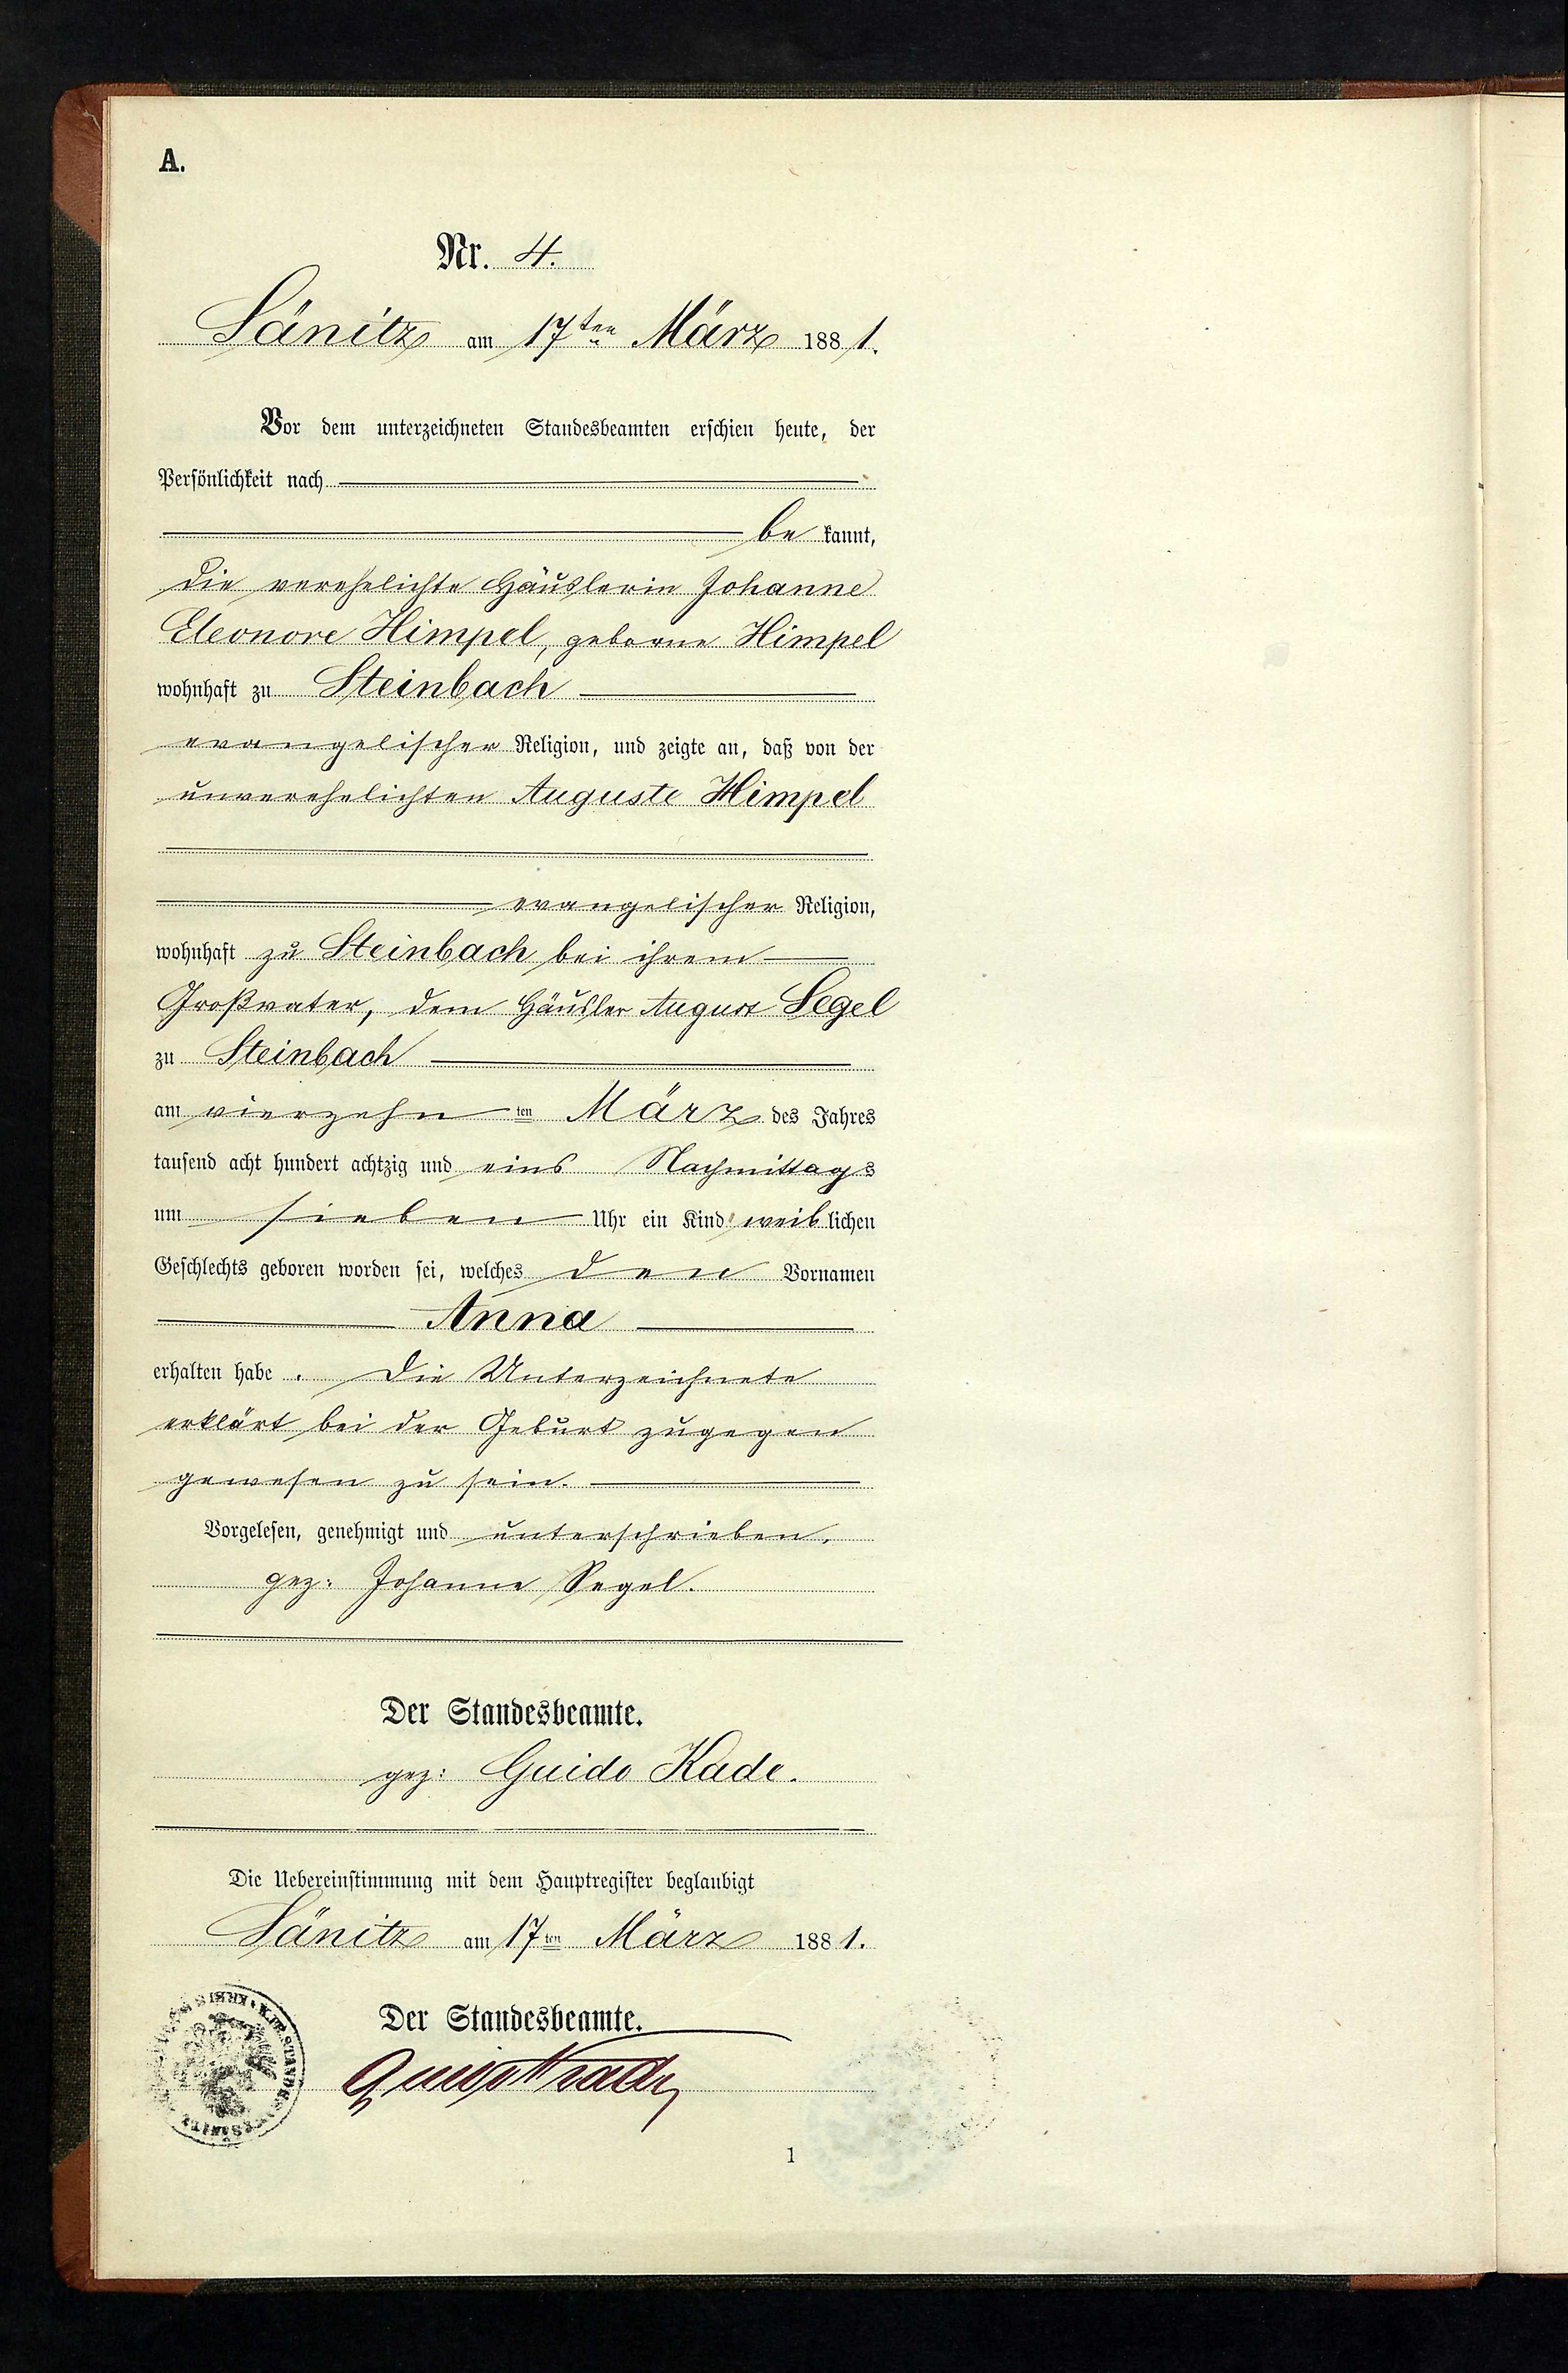 A.
Nr. 4.
Sänitz am 17ten März 1881.
Vor dem unterzeichneten Standesbeamten erschien heute, der
Persönlichkeit nach
be kannt,
die verehelichte Häuslerin Johanne
Eleonore Himpel, geborne Himpel
wohnhaft zu Steinbach
evangelischer Religion, und zeigte an, daß von der
unverehelichten Auguste Himpel
evangelischer Religion,
wohnhaft zu Steinbach bei ihrem
Großvater, dem Häusler August Segel
zu Steinbach
am vierzehn ten März des Jahres
tausend acht hundert achtzig und eins Nachmittags
um sieben Uhr ein Kind weib lichen
Geschlechts geboren worden sei, welches den Vornamen
Anna
erhalten habe . Die Unterzeichnete
erklärt bei der Geburt zugegen
gewesen zu sein.
Vorgelesen, genehmigt und unterschrieben,
gez: Johanne Segel.
Der Standesbeamte.
gez: Guido Kade.
Die Uebereinstimmung mit dem Hauptregister beglaubigt
Sänitz am 17ten März 1881.
Der Standesbeamte.
Guido Kade
1